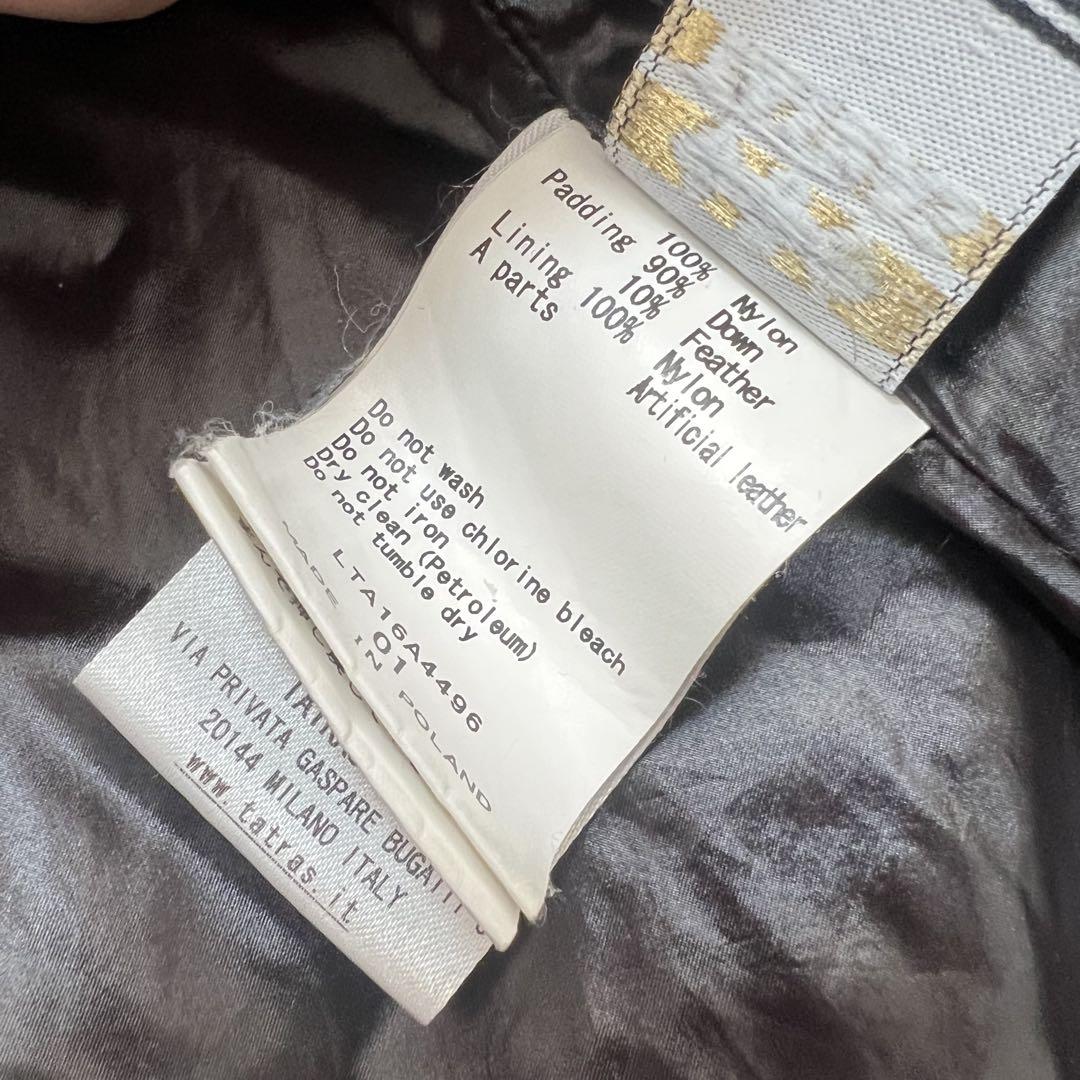 100% Nylon
Padding 90% Down
10% Feather
Lining 100% Nylon
A parts Artificial leather
Do not wash
Do not use chlorine bleach
Do not iron
Dry clean (Petroleum)
Do not tumble dry
LTA16A4496
01
MADE IN POLAND
VIA PRIVATA GASPARE BUGATTI
20144 MILANO ITALY
www.tatras.it